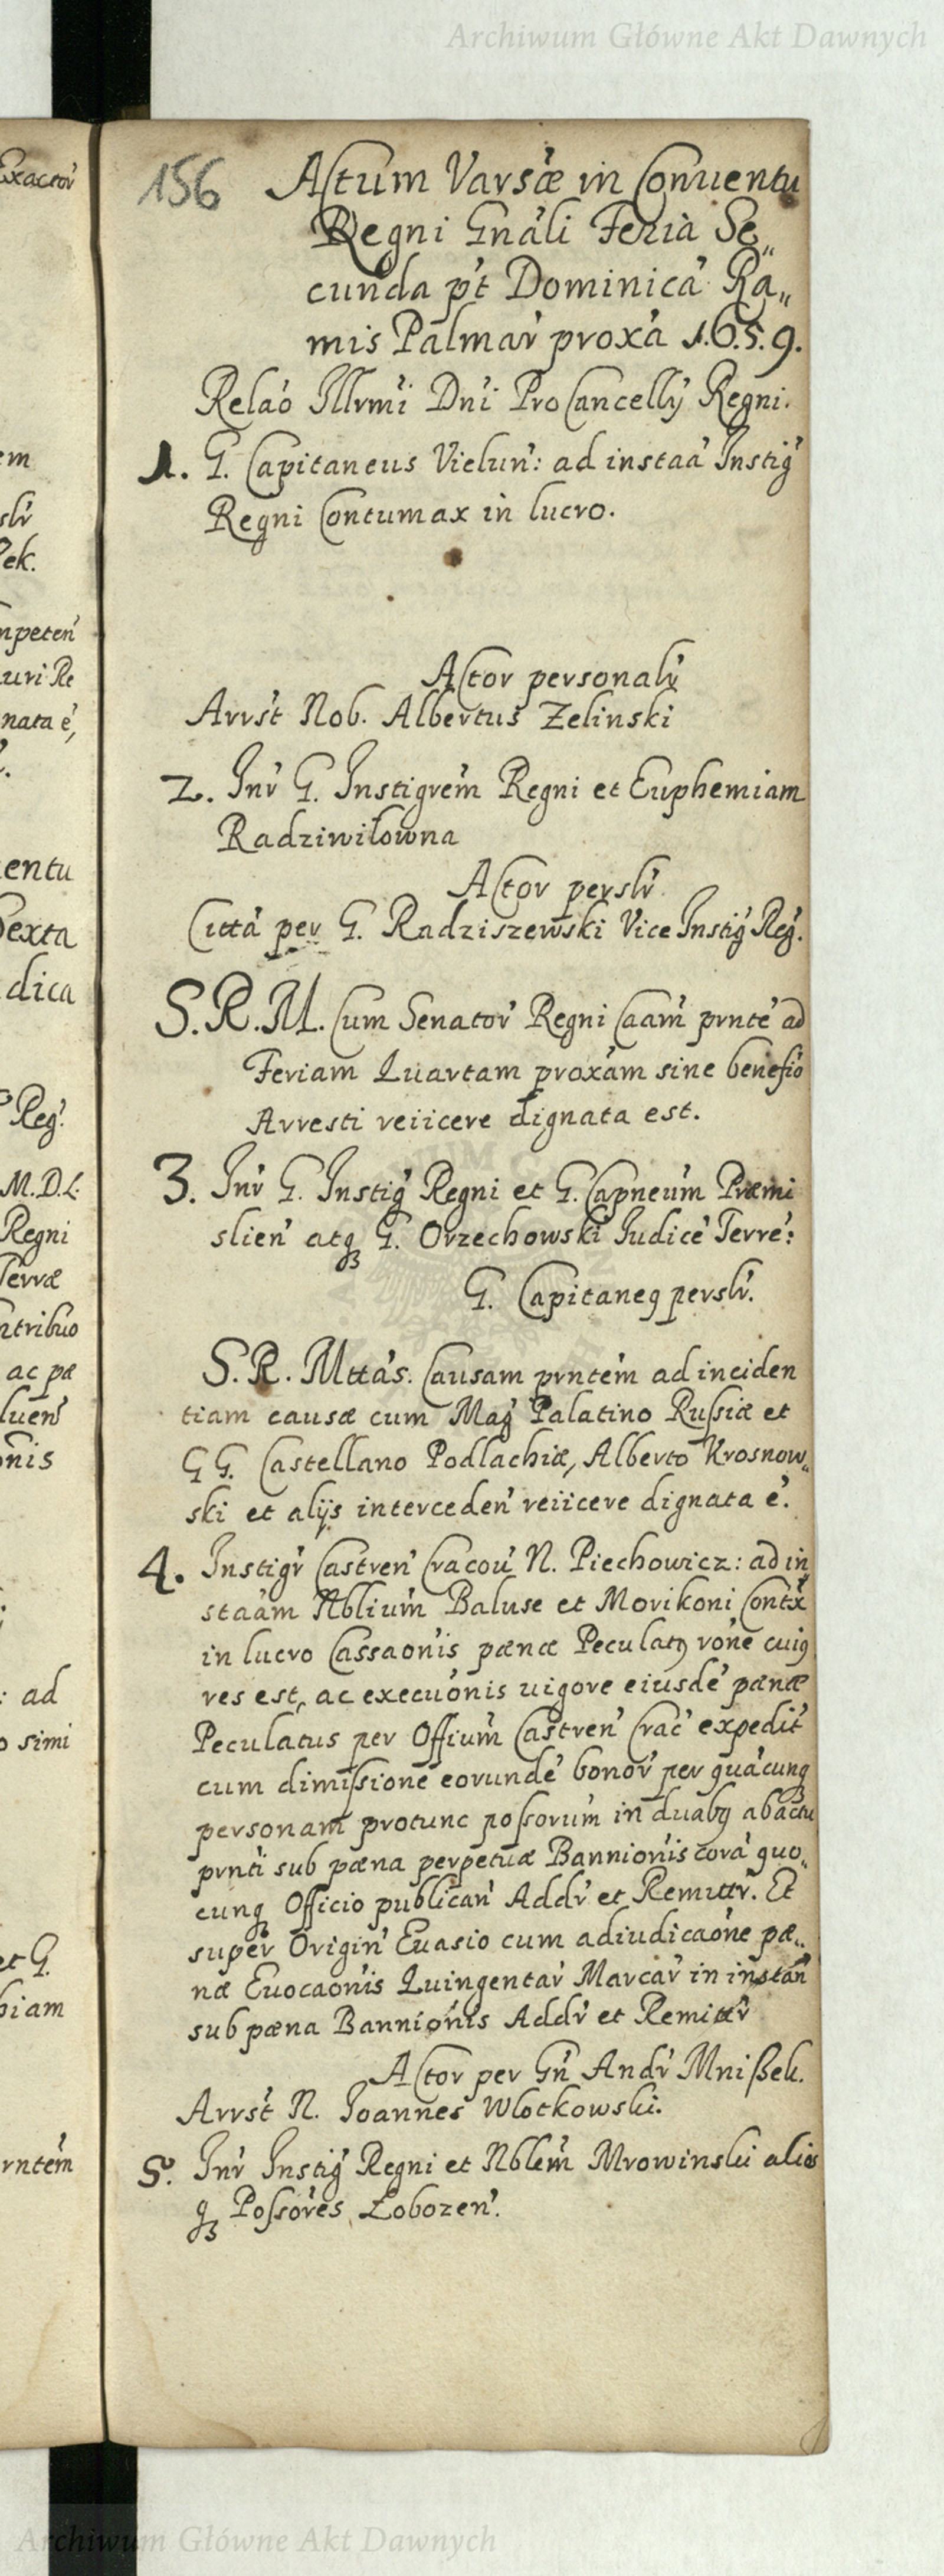 Archiwum Główne Akt Dawnych
156
Actum Varsæ in Conuentu
Regni Gnáli Feria Se„
cunda pt Dominica Ra„
mis Palmar proxa 1.6.5.9.
Relao Illrmi Dni ProCancellÿ Regni.
1. G. Capitaneus Vielun: ad instaa Instig
Regni Contumax in lucro.
Actor personalr
Arrst Nob. Albertus Zelinski
2. Inr G. Instigrem Regni et Euphemiam
Radziwiłowna
Actor perslr
Citta per G. Radziszewski Vice Instig Reg.
S.R.M. Cum Senator Regni Caam prnte ad
Feriam Quartam proxam sine benefio
Arresti reiicere dignata est.
3. Inr G. Instig Regni et G. Capneum Præmi
slien atq G. Orzechowski Judice Terre:
G. Capitaneq perslr.
S.R. Mttas. Causam prntem ad inciden
tiam causæ cum Mag Palatino Russiæ et
GG. Castellano Podlachiæ, Alberto Krosnow„
ski et alijs interceden reiicere dignata e.
4. Instigr Castren Cracou N. Piechowicz: ad in
staam Nblium Baluse et Morikoni Contx
in lucro Cassaonis pænæ Peculatq rone cuiq
res est, ac execuonis uigore eiusde pænæ
Peculatus per Offium Castren Crac expedit
cum dimissione eorunde bonor per quacunq
personam protunc possorum in duabq ab actu
prnti sub pæna perpetuæ Bannionis cora quo„
cunq Officio publican Addr et Remittr. Et
super Origin Euasio cum adiudicaone pæ„
næ Euocaonis Quingentar Marcar in instan
sub pæna Bannionis Addr et Remittr
Actor per Gn Andr Mnißek.
Arrst N. Joannes Wlotkowski.
5. Inr Instig Regni et Nblem Mrowinski alios
q Possores Łobozen.
Archiwum Główne Akt Dawnych